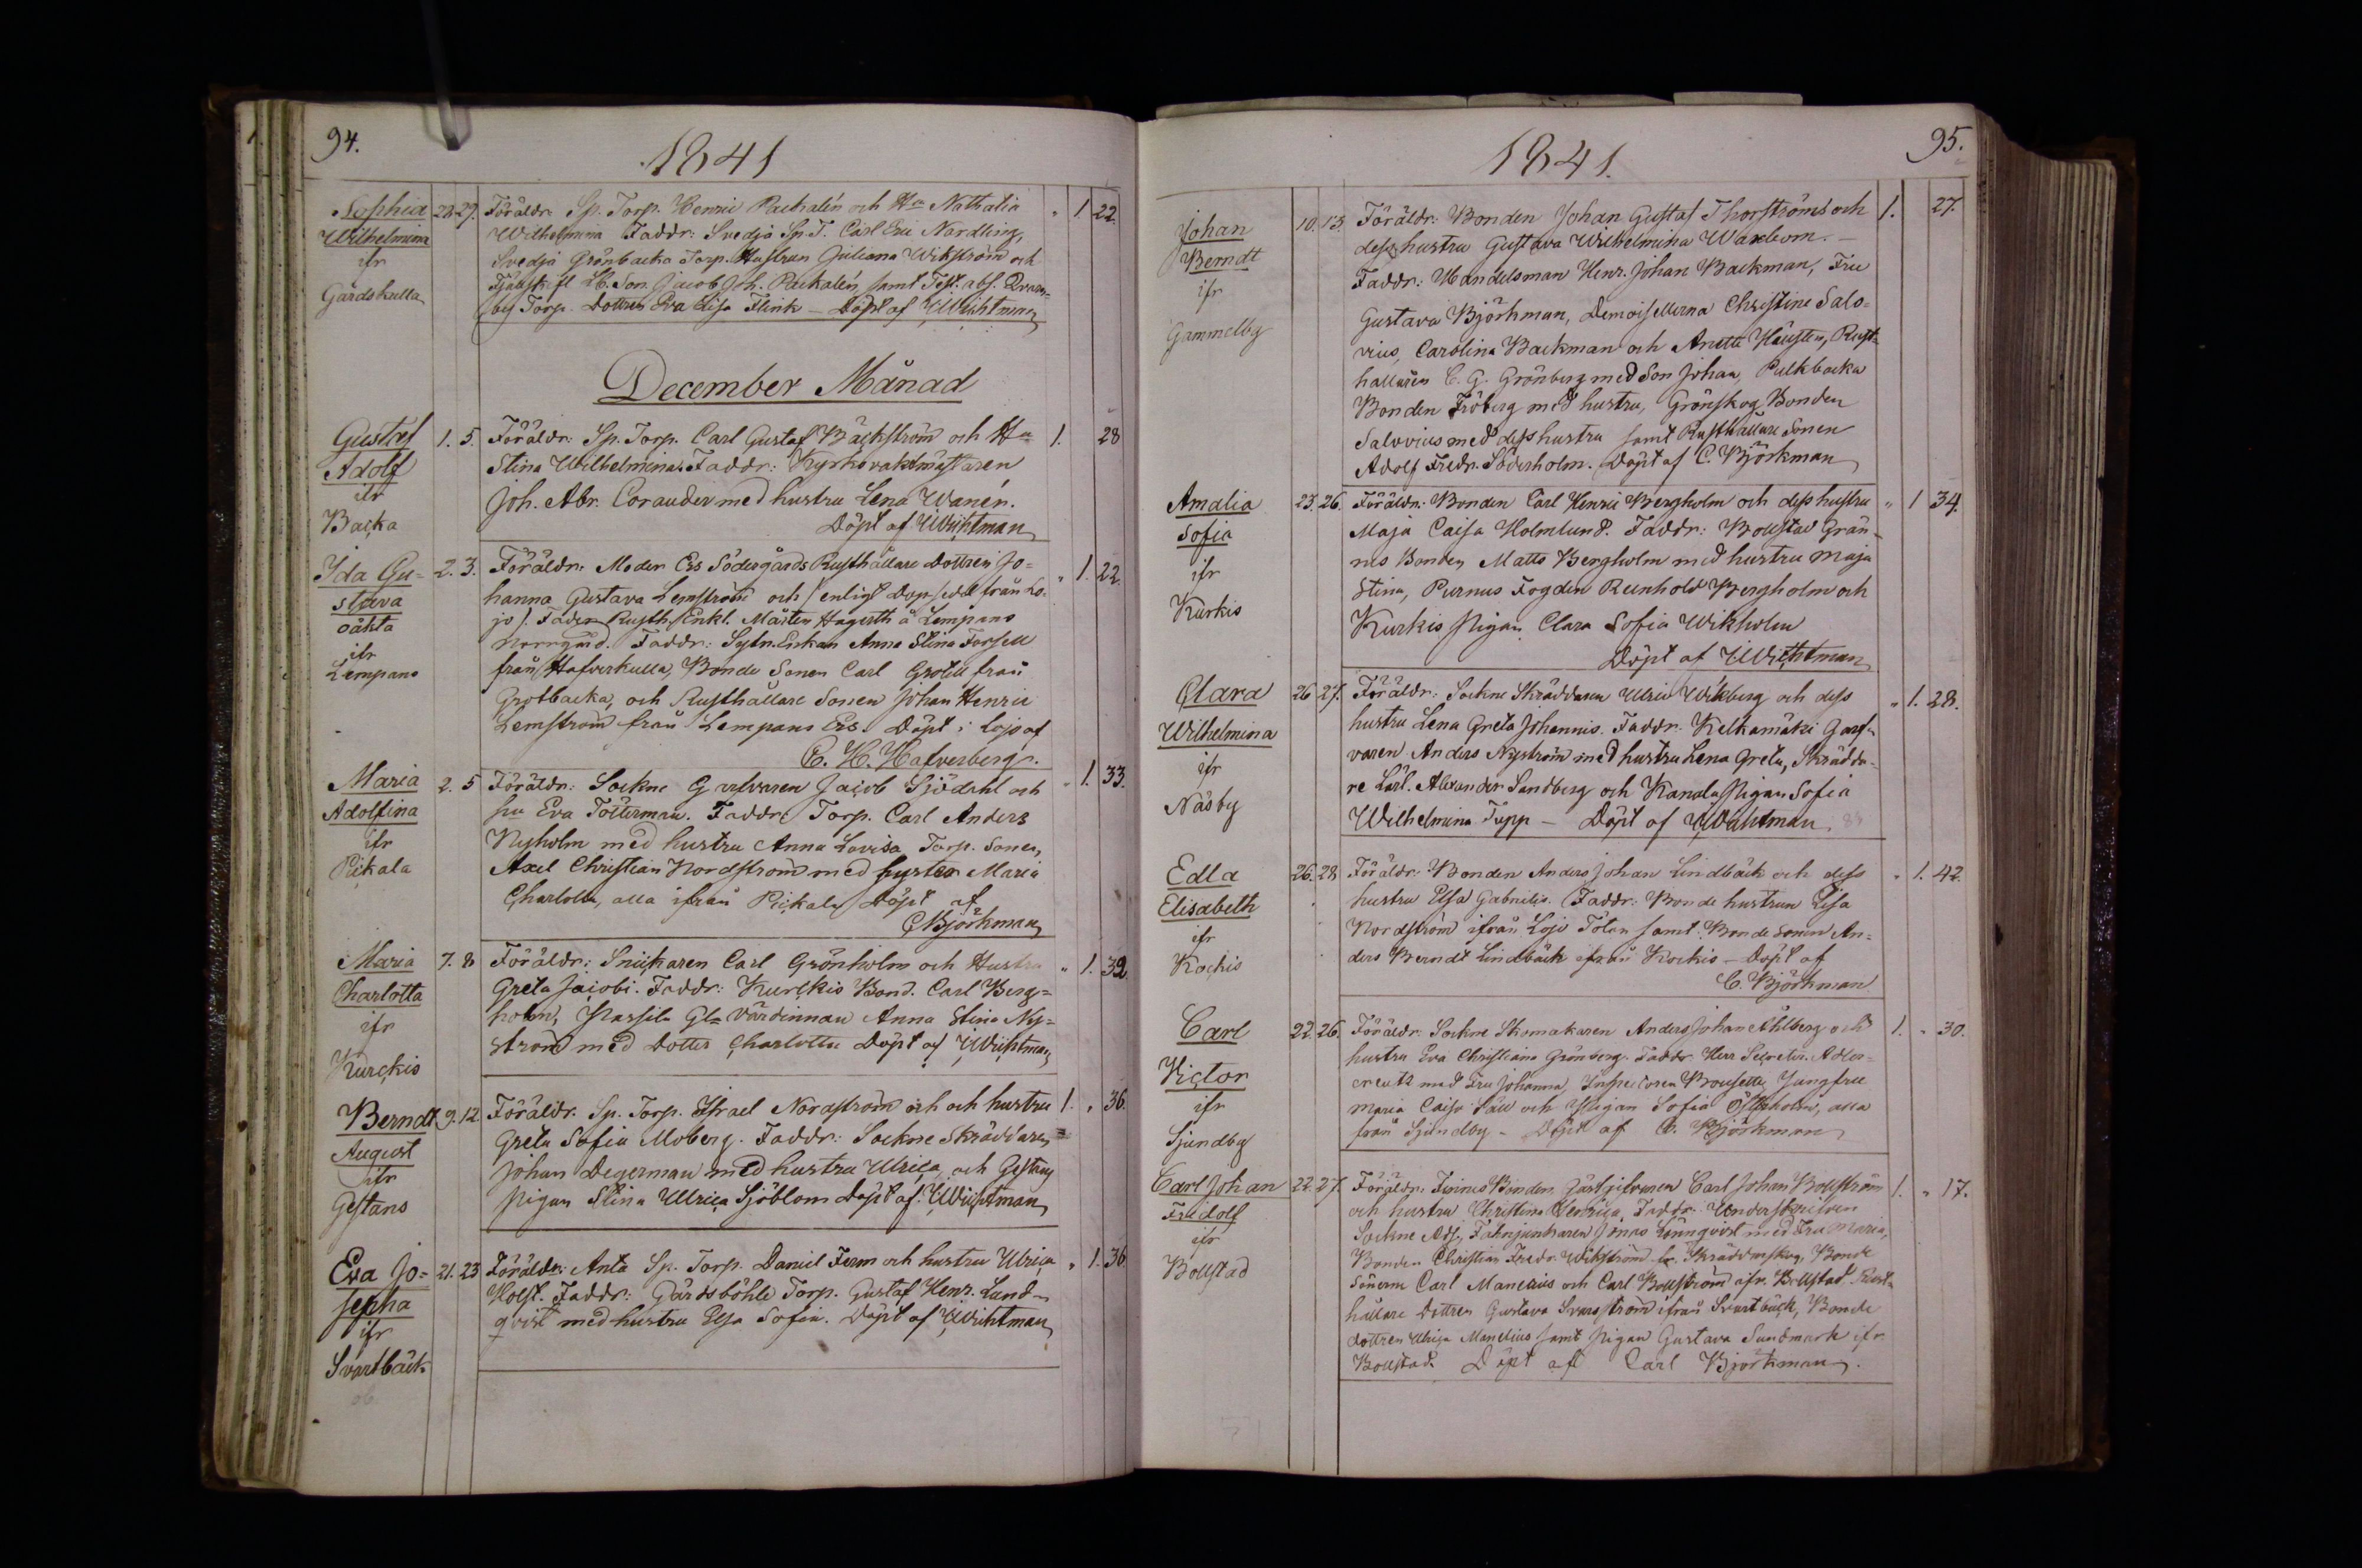 94.
1841
Sophia Wilhelmina ifr Gårdskulla
28. 29.
Föräldr: Sp. Torp. Henric Packalén och Hu Nathalia
Wilhelmina Faddr: Svedja Sp. T. Carl Eric Nordling,
Svedja Grönbacka Torp. Hustrun Juliana Wikström och
Son Jacob Joh. Packalén, samt
Torp. Dottren Eva Lisa Flink – Döpt af Wichtman
" 1. 22.
December Månad
Gustaf Adolf ifr Backa
1. 5.
Föräldr: Sp. Torp. Carl Gustaf Bäckström och Hu
Stina Wilhelmina. Faddr: Kyrkovaktmästaren
Joh. Abr. Corander med hustru Lena Wanén.
Döpt af Wichtman
1. 28
Ida Gu=
stava oäkta ifr Lempans
2. 3.
Föräldr: Moder Ers Södergårds Rusthållare Dottren Jo=
hanna Gustava Lemström och / enligt Dop sedel från Lo=
jo /. Fader Rusth. Enkl. Mårten Hagerth å Lempans
Norrgård. Faddr: Sytn. Enkan Anna Stina Forsell
från Hafverkulla, Bonde Sonen Carl Grotell från
Grotbacka, och Rusthållare Sonen Johan Henric
Lemström från Lempans Ers. Döpt i Lojo af
C. H. Hafverberg.
" 1. 22.
Maria Adolfina ifr Pikala
2. 5
Föräldr: Sockne Garfvaren Jacob Sjödahl och
hu Eva Tötterman. Faddr: Torp. Carl Anders
Nyholm med hustru Anna Lovisa Torp. Sonen
Axel Christian Nordström med syster Maria
Charlotta, alla ifrån Pickala Döpt af
C Björkman
" 1. 33.
Maria Charlotta ifr Kurckis
7. 8
Föräldr: Snickaren Carl Grönholm och Hustru
Greta Jacobi. Faddr: Kurckis Bond. Carl Berg=
holm, Passila Gla Värdinnan Anna Stina Ny=
ström med Dotter Charlotta Döpt af Wichtman
" 1. 39
Berndt August ifr Gestans
9. 12.
Föräldr. Sp. Torp. Israel Nordström och och hustru
Greta Sofia Moberg. Faddr: Sockne Skräddaren
Johan Degerman med hustru Ulrica, och Gestans
Pigan Stina Ulrica Sjöblom Döpt af Wichtman
1. " 36.
Eva Jo=
sepha ifr Svartbäck
21. 23
Föräldr: Anta Sp. Torp. Daniel Ferm och hustru Ulrica
Holst. Faddr: Gårdsböhle Torp. Gustaf Henr. Lund=
qvist med hustru Elsa Sofia. Döpt af Wichtman
" 1. 36
95.
1841.
Johan Berndt ifr Gammelby
10. 13.
Föräldr: Bonden Johan Gustaf Thorström och
dess hustru Gustava Wilhelmina Waxbom. –
Faddr: Handelsman Henr. Johan Backman, Fru
Gustava Björkman, Demoisellerna Christine Salo=
vius, Carolina Backman och Anette Rust=
hållaren C. G. Grönberg med Son Johan, Pulkbacka
Bonden Fröberg med hustru, Grönskog Bonden
Salovius med dess hustru samt Rusthållare Sonen
Adolf Fredr. Söderholm. Döpt af C. Björkman
1. 27.
Amalia Sofia ifr Kurkis
23. 26.
Föräldr: Bonden Carl Henric Bergholm och dess hustru
Maja Caisa Holmlund. Faddr: Bollstad Grän=
nes Bonden Matts Bergholm med hustru Maja
Stina, Purnus Fogden Reinhold Bergholm och
Kurkis Pigan Clara Sofia Wikholm
Döpt af Wichtman
" 1 34.
Clara Wilhelmina ifr Näsby
26 27.
Föräldr: Sockne Skräddaren Ulric Wikberg och dess
hustru Lena Greta Johannis. Faddr. Kelkamäki Garf=
varen Anders Nyström med hustru Lena Greta, Skrädda=
re Lärl. Alexander Sandberg och Kanala Pigan Sofia
Wilhelmina Tupp – Döpt af Wichtman
" 1. 28.
Edla Elisabeth ifr Kockis
26. 28
Föräldr: Bonden Anders Johan Lindbäck och dess
hustru Elsa Gabrielis. Faddr: Bonde hustrun Lisa
Nordström ifrån Lojo Tötar samt Bonde Sonen An=
ders Berndt Lindbäck ifrån Kockis – Döpt af
C. Björkman
" 1. 42.
Carl Victor ifr Sjundby
22. 26.
Föräldr: Sockne Skomakaren Anders Johan Ahlberg och
hustru Eva Christiana Grönberg. Faddr. Herr Secreter. Adler=
creutz med Fru Johanna, Inspectoren Jungfru
Maria Caisa Säll och Pigan Sofia Österholm, alla
från Sjundby – Döpt af C. Björkman
1. " 30.
Carl Johan Fridolf ifr Bollstad
22. 27.
Föräldr: Bonden, Gästgifvaren Carl Johan Bollström
och hustru Christina Henrica, Faddr: Underskrifven
Sockne Adj. Fahnjunkaren Jonas Lönnqvist med Fru Maria,
Bonden Christian Fredr. Wikström fr. Skräddarskog, Bonde
Sönerna Carl Manelius och Carl Bollström ifr. Bollstad Rust=
hållare Dottren Gustava Svarsström ifrån Svartbäck, Bonde
dottren Ulrica Manelius samt Pigan Gustava Sundmark ifr
Bollstad. Döpt af Carl Björkman.
1. " 17.